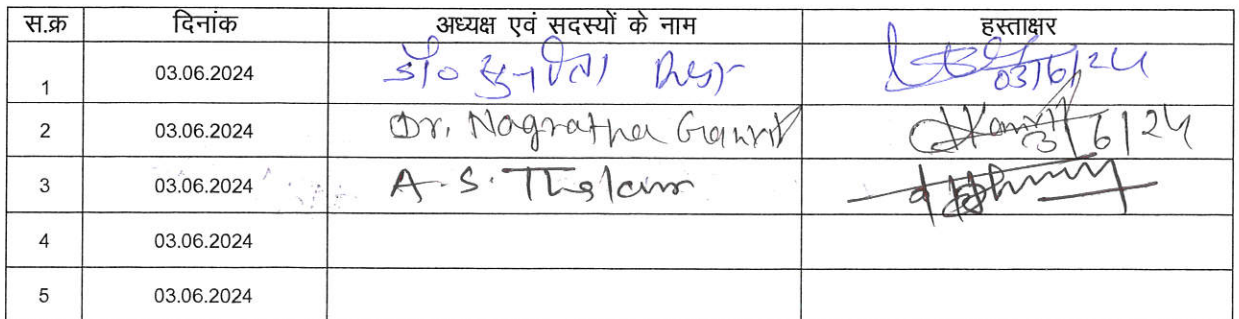 स.क्र दिनांक अध्यक्ष एवं सदस्यों के नाम हस्ताक्षर
1 03.06.2024 डॉ० सुनीता 03/6/24
2 03.06.2024 Dr. Nagratna Ganvir 3/6/24
3 03.06.2024 A.S.
4 03.06.2024
5 03.06.2024